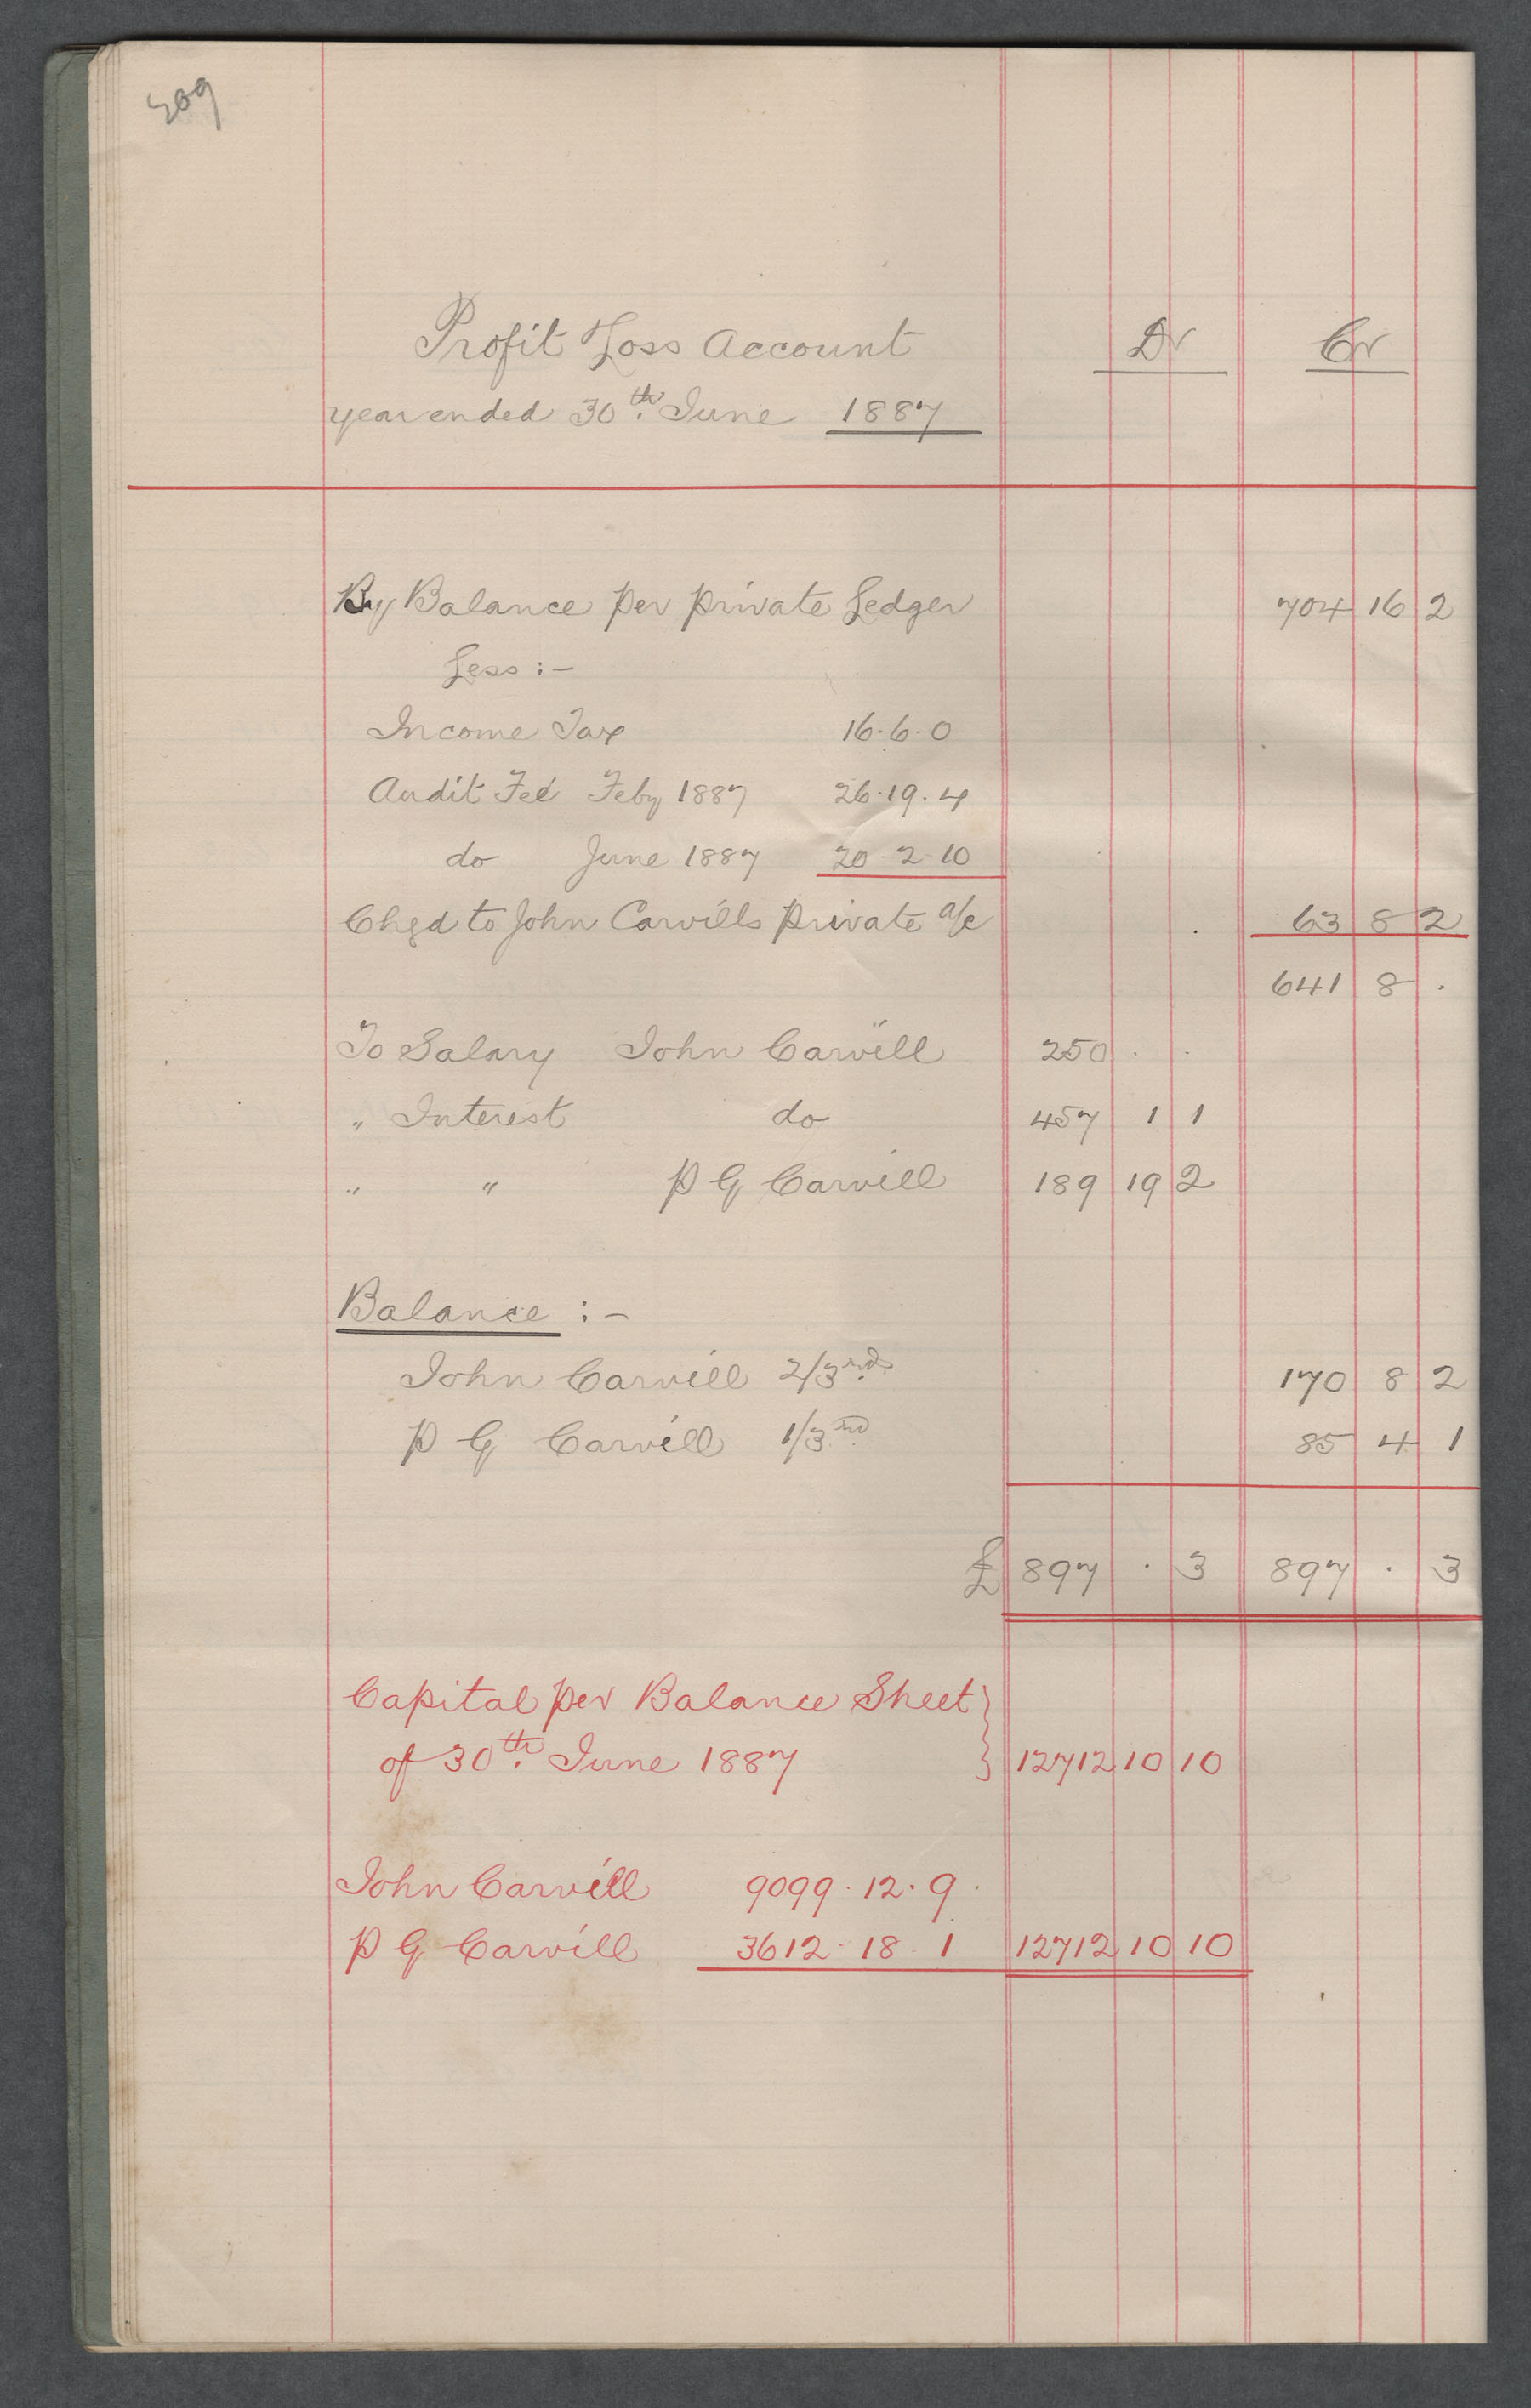 309
Profit & Loss Account Dr Cr
year ended 30th June 1887
By Balance per private Ledger 704 16 2
Less :-
Income Tax 16.6.0
Audit Fee Feby 1887 26.19.4
do June 1887 20.2.10
Chgd to John Carvills private a/c 63 8 2
641 8 .
To Salary John Carvill 250 . .
" Interest do 457 1 1
" " P G Carvill 189 19 2
Balance :-
John Carvill 2/3rds 170 8 2
P G Carvill 1/3rd 85 4 1
£ 897 . 3 897 . 3
Capital per Balance Sheet }
of 30th June 1887 } 12712 10 10
John Carvill 9099.12.9.
P G Carvill 3612.18.1 12712 10 10